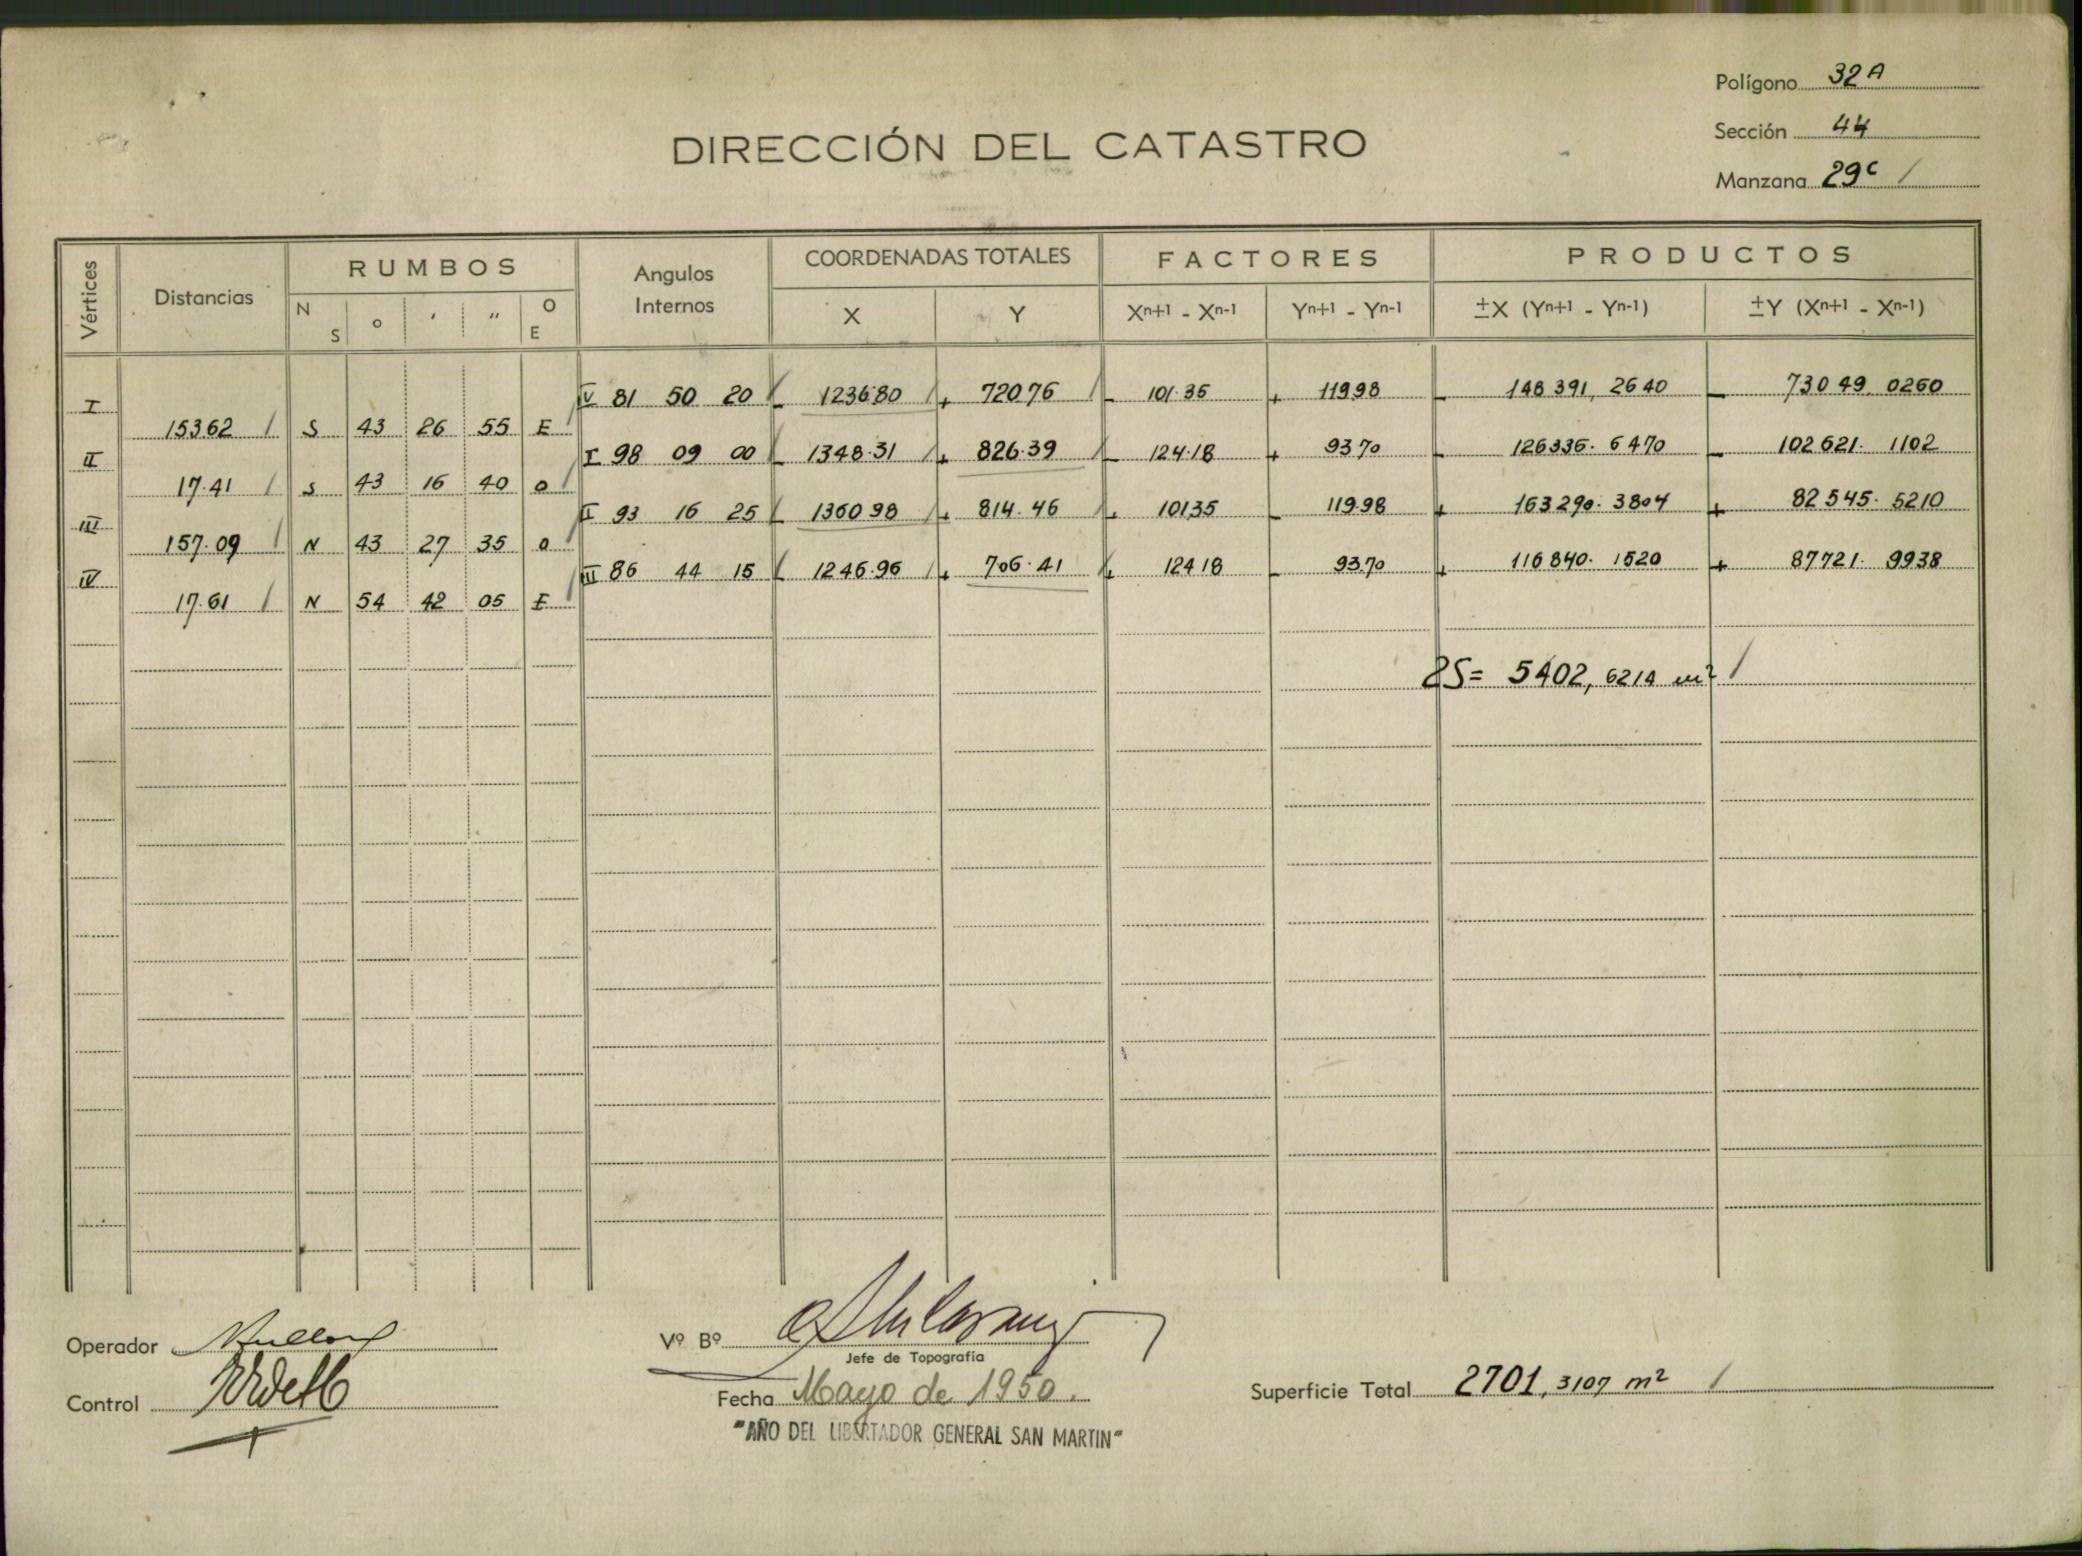 Polígono 32A
Sección 44
Manzana 29c /
DIRECCIÓN DEL CATASTRO
Vértices Distancias RUMBOS Angulos Internos COORDENADAS TOTALES FACTORES PRODUCTOS
N S o ' " O E X Y Xn+1 - Xn-1 Yn+1 - Yn-1 ±X (Yn+1 - Yn-1) ±Y (Xn+1 - Xn-1)
I IV 81 50 20 / - 1236.80 / + 720.76 / - 101.35 + 119.98 - 148391,2640 - 73049.0260
153.62 / S 43 26 55 E /
II I 98 09 00 / - 1348.31 / + 826.39 / - 124.18 + 93.70 - 126336.6470 - 102621.1102
17.41 / S 43 16 40 O /
III II 93 16 25 / - 1360.98 / + 814.46 / + 101.35 - 119.98 + 163290.3804 + 82545.5210
157.09 / N 43 27 35 O /
IV III 86 44 15 / - 1246.96 / + 706.41 / + 124.18 - 93.70 + 116840.1520 + 87721.9938
17.61 / N 54 42 05 E /
2S= 5402,6214 m² /
Operador
Control
Vº Bº
Jefe de Topografia
Fecha Mayo de 1950.
"AÑO DEL LIBERTADOR GENERAL SAN MARTIN"
Superficie Total 2701,3107 m² /